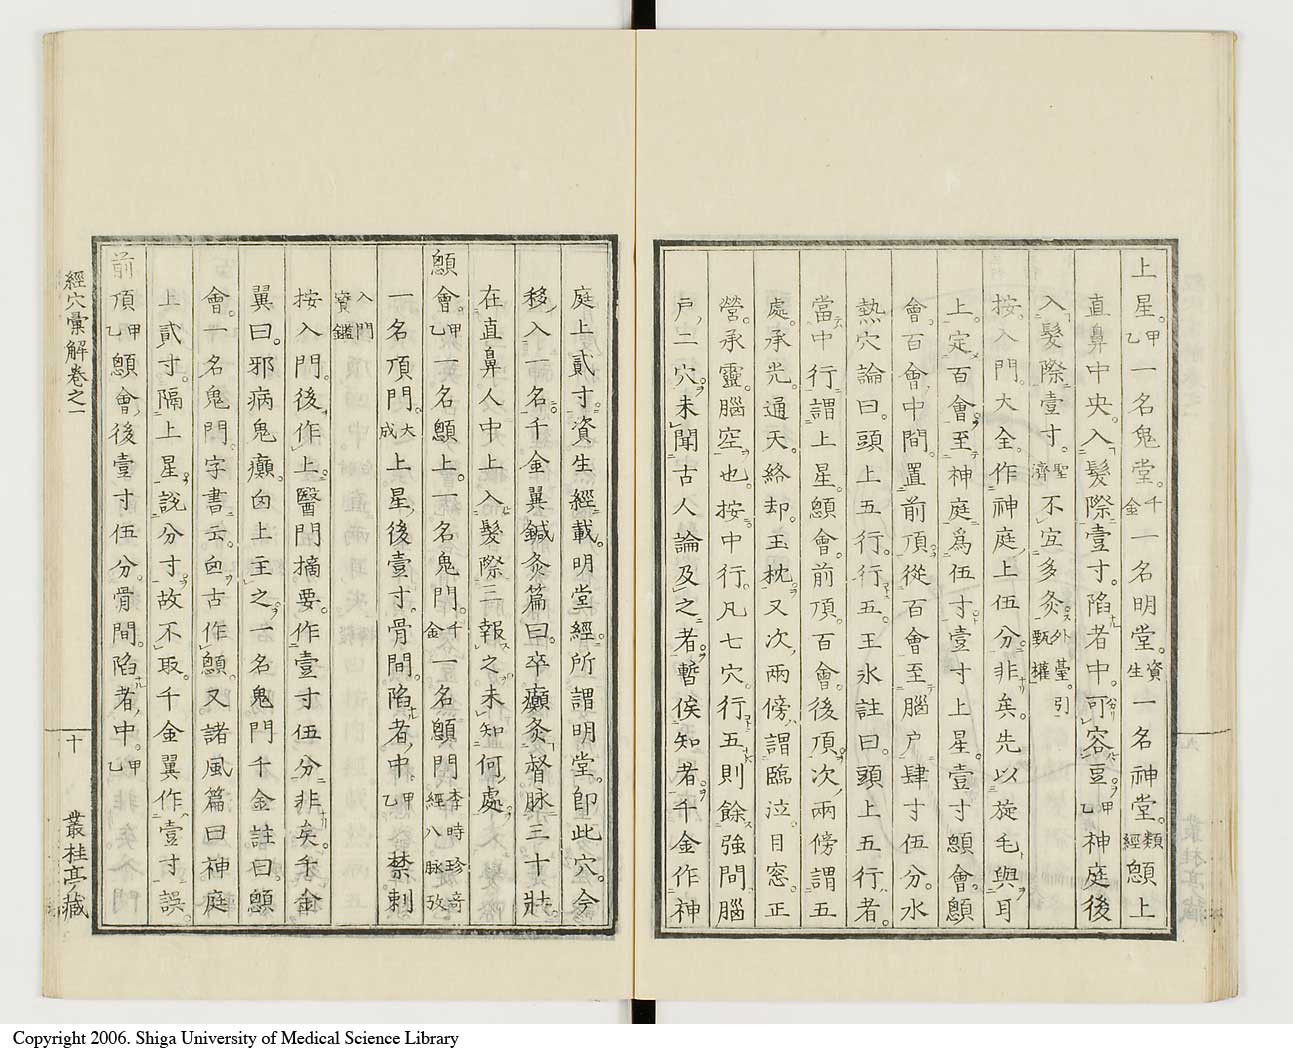 上星。甲乙一名鬼堂。千金一名明堂。資生一名神堂。類經顖上
直鼻中央。入髮際壹寸。陷者中。可容豆。甲乙神庭後
入髮際壹寸。聖濟不宜多灸。外臺。引甄權
按。入門。大全。作神庭上伍分。非矣。先以旋毛與耳
上。定百會。至神庭。爲伍寸。壹寸上星。壹寸顖會。顖
會。百會。中間。置前頂。從百會至腦戶肆寸伍分。水
熱穴論曰。頭上五行。行五。王氷註曰。頭上五行者。
當中行。謂上星。顖會。前頂。百會。後頂。次兩傍。謂五
處。承光。通天。絡却。玉枕。又次兩傍。謂臨泣。目窓。正
營。承靈。腦空也。按。中行。凡七穴。行五則餘強間。腦
戶。二穴。未聞古人論及之者。暫俟知者。千金作神
庭上貳寸。資生經載。明堂經。所謂明堂。卽此穴。今
移入一名。千金翼鍼灸篇曰。卒癲灸督脉三十壯。
在直鼻人中上入髮際。三報之。未知何處。
顖會。甲乙一名顖上。一名鬼門。千金一名顖門李時珍奇經八脉攷
一名頂門。大成上星後壹寸。骨間。陷者中。甲乙禁刺
入門寶鑑
按入門。後作上。醫門摘要。作壹寸伍分。非矣。千金
翼曰。邪病鬼癲。囟上主之。一名鬼門千金註曰。顖
會。一名鬼門。字書云。囟古作顖。又諸風篇曰神庭
上貳寸。隔上星。說分寸。故不取。千金翼作壹寸誤。
前頂。甲乙顖會後壹寸伍分。骨間。陷者中。甲乙
經穴彙解卷之一
十
叢桂亭藏
Copyright 2006. Shiga University of Medical Science Library